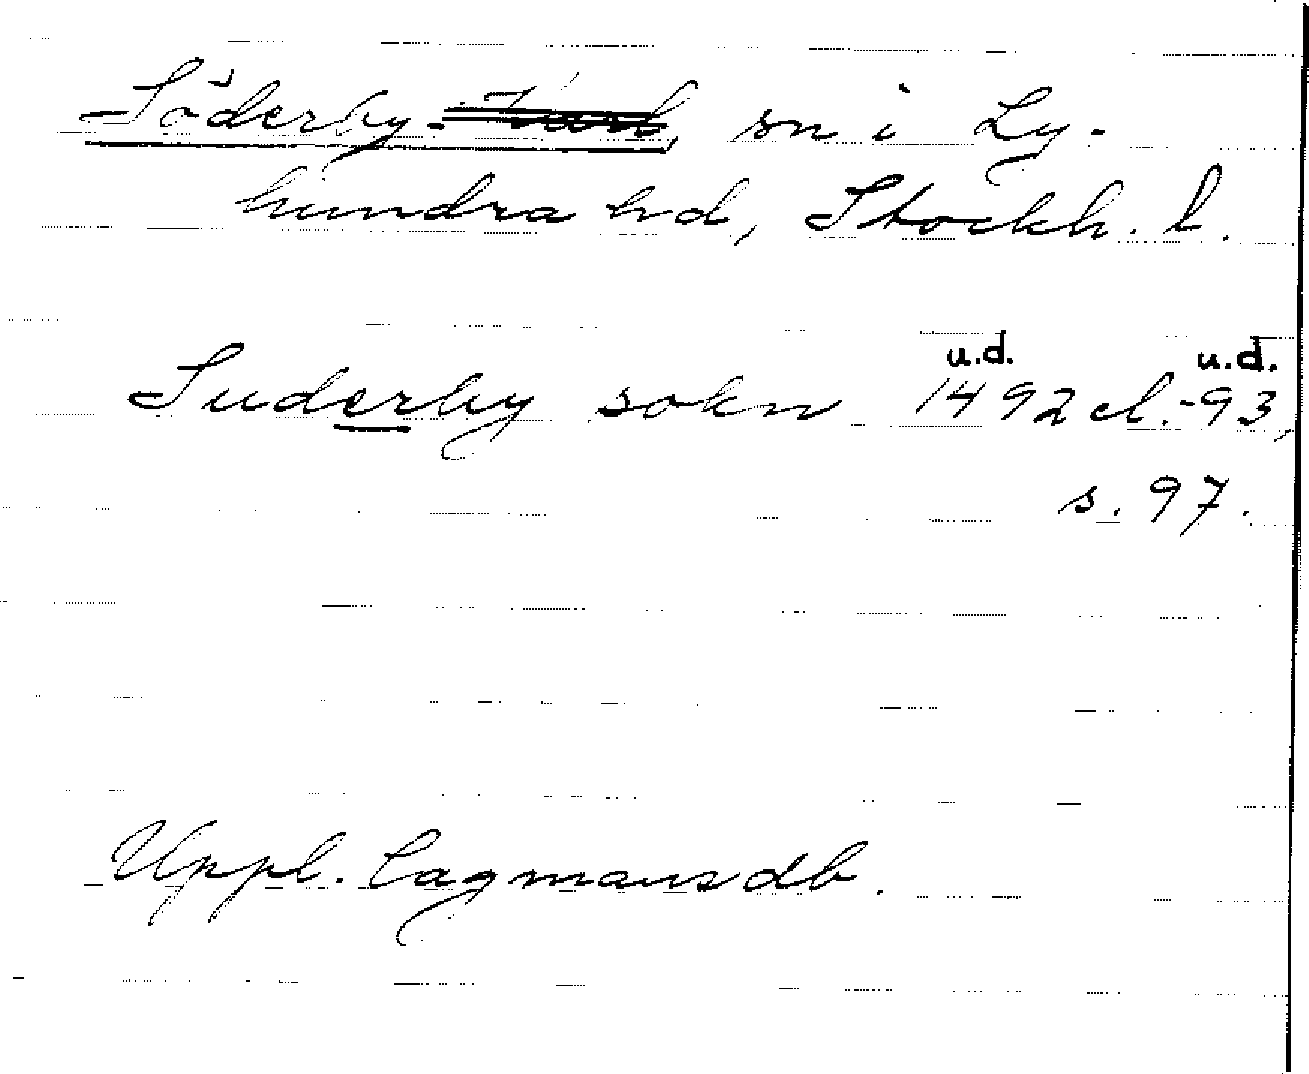 Söderby-, sn i Ly-
hundra hd, Stockh. l.
u.d. u.d.
Suderby sokn 1492 el.-93,
s. 97.
Uppl. Lagmansdb.